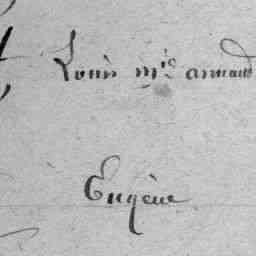 Louis mie armand
Eugène